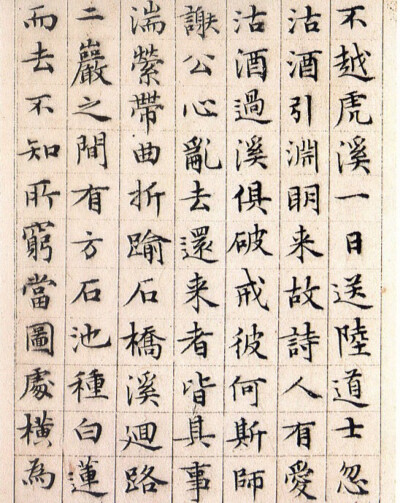 不越虎溪一日送陸道士忽
沽酒引淵明来故詩人有愛
沽酒過溪俱破戒彼何斯師
謝公心亂去還来者皆其事
湍縈帶曲折踰石橋溪廻路
二巖之間有方石池種白蓮
而去不知所窮當圖處橫為